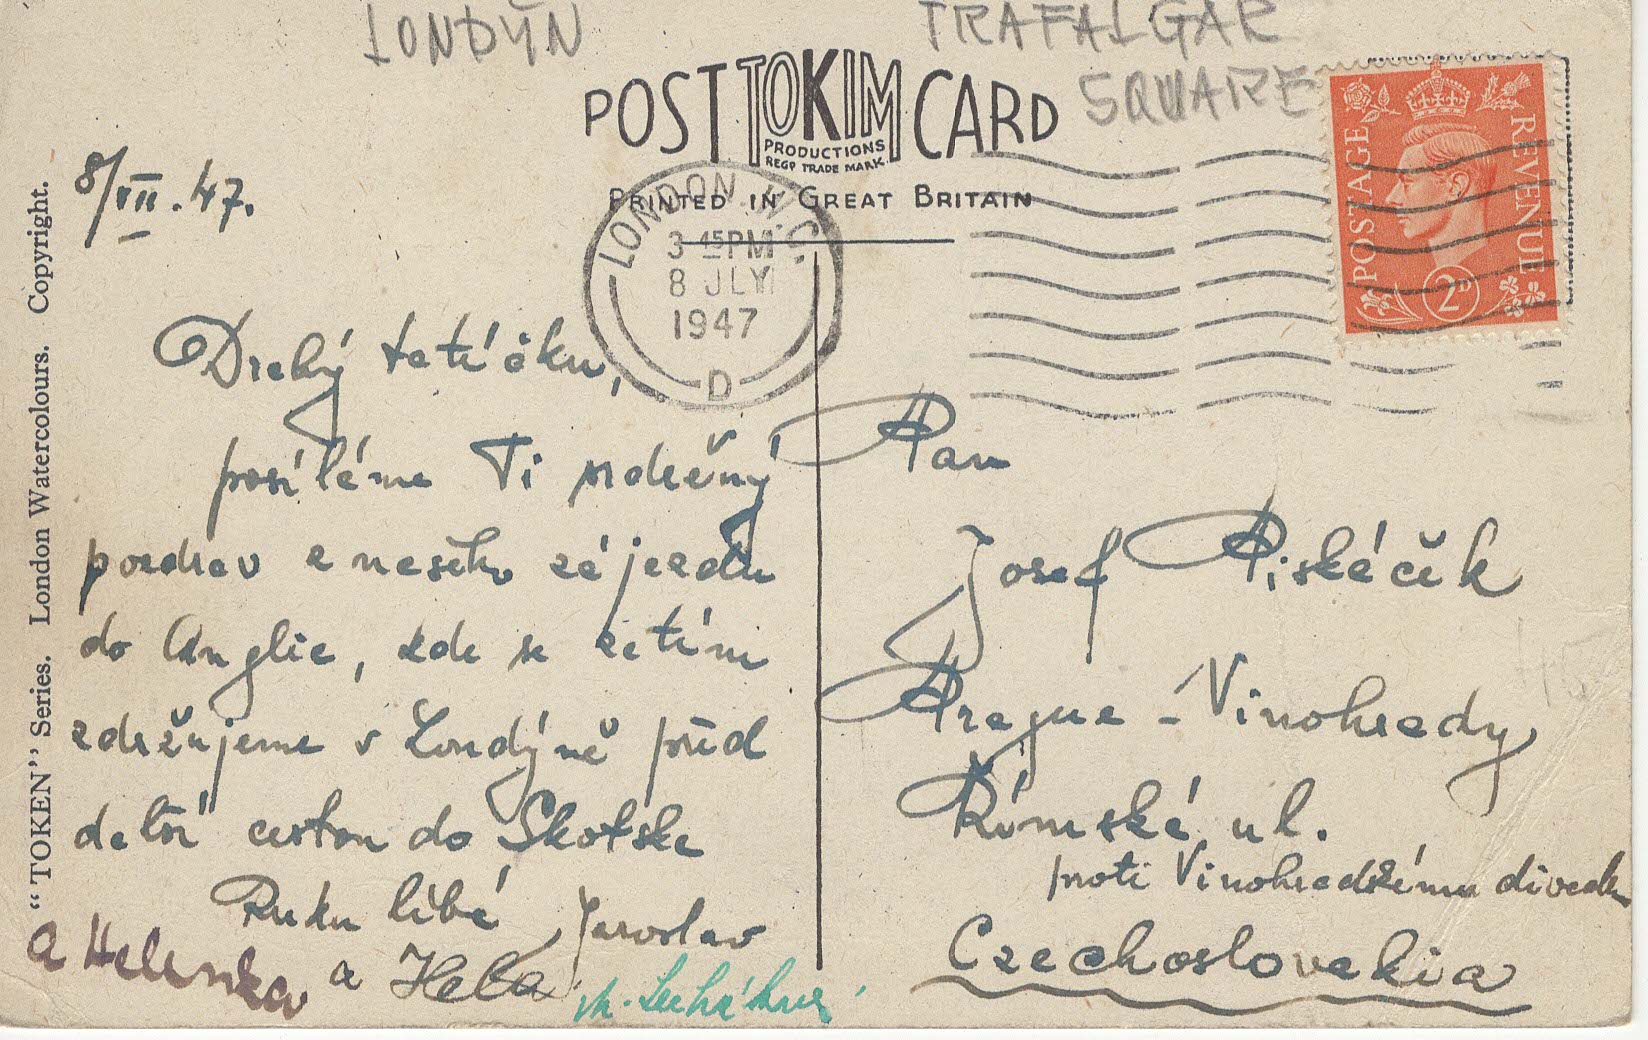 LONDÝN TRAFALGAR
SQUARE
POST TOKIM CARD
PRODUCTIONS
REGD TRADE MARK.
PRINTED IN GREAT BRITAIN
LONDON W.C.
3 45 PM
8 JLY
1947
D
POSTAGE REVENUE
2D
"TOKEN" Series. London Watercolours. Copyright.
8/VII. 47.
Drahý tatíčku,
posíláme Ti srdečný
pozdrav z našeho zájezdu
do Anglie, kde se zatím
zdržujeme v Londýně před
další cestou do Skotska
Ruku líbá Jaroslav
a Helenka a Hela
Pan
Josef Piskáček
Prague - Vinohrady
Římská ul.
proti Vinohradskému divadlu
Czechoslovakia